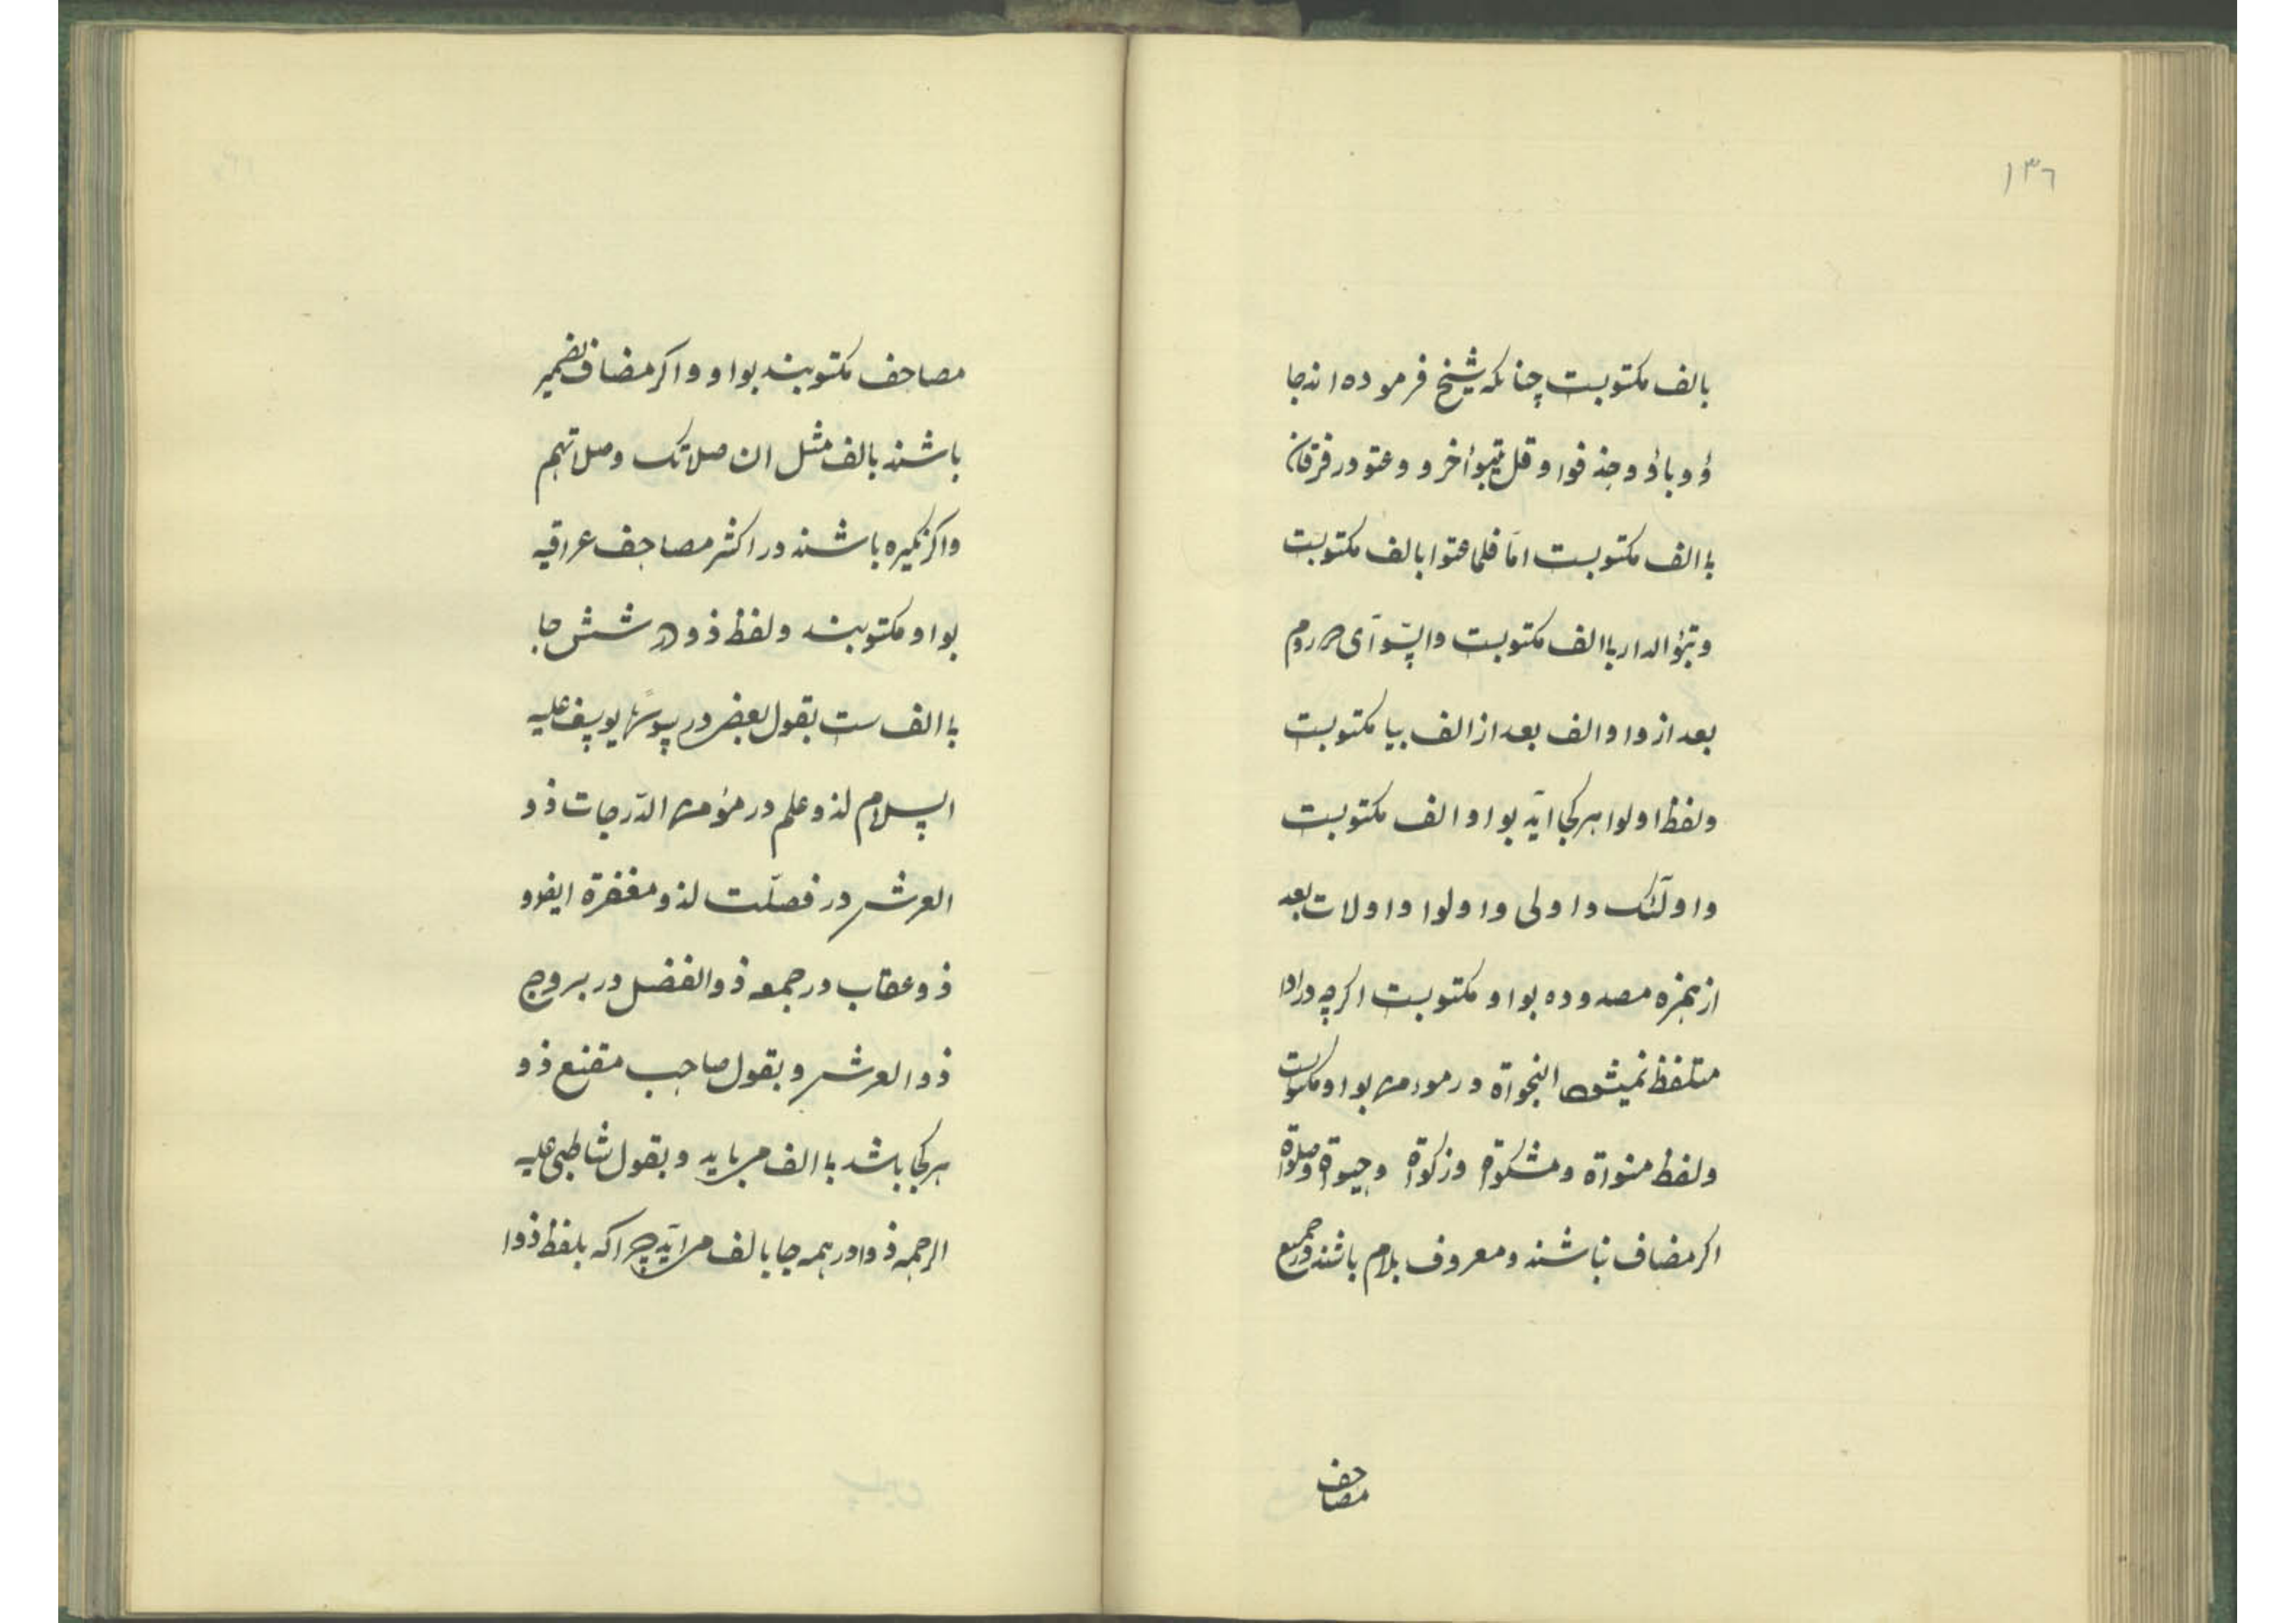 ١٣٦
بالف مکتوبست چنانکه شیخ فرموده اند جا
ؤ و باؤ و حذفوا و قل تبوأ خر و و عتو در فرقان
باالف مکتوبست امّا فلما عتوا بالف مکتوبست
و تبؤ الدار باالف مکتوبست و السّوآی در روم
بعد از واو الف بعد از الف بیا مکتوبست
ولفظ اولوا هرکجا آید بواو الف مکتوبست
و اولٓئک و اولی و اولوا و اولات بعد
از همزه مصدوده بواو مکتوبست اکرچه در ادا
متلفظ نمیشود النجواة در مومن بواو مکتوبست
ولفظ منواة و مشکوة و زکواة و حیوة و صلوة
اکر مضاف نباشند و معروف بلام باشند در جمیع
مصاحف
مصاحف مکتوبند بواو و اکر مضاف بضمیر
باشند بالف مثل ان صلاتک و صلاتهم
واکر نکیره باشند در اکثر مصاحف عراقیه
بواو مکتوبند و لفظ ذو در شش جا
باالف ست بقول بعضی در یوسف علیه
السلام لذو علم در مؤمن الدّرجات ذو
العرش در فصلّت لذو مغفرة ایضو
ذو عقاب در جمعه ذوالفضل در بروج
ذوالعرش و بقول صاحب مقنع ذو
هرکجا باشد باالف می باید و بقول شاطبی علیه
الرحمه ذوا در همه جا بالف می آید چراکه بلفظ ذوا